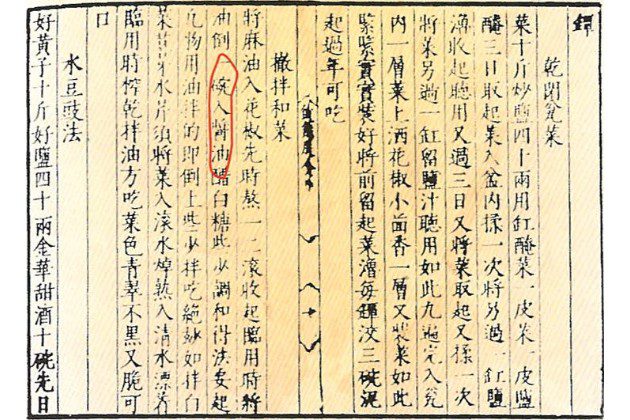 鐔
乾閉瓮菜
菜十斤炒鹽四十兩用缸醃菜一皮菜一皮鹽
醃三日取起菜入盆內揉一次將另過一缸鹽
滷收起聽用又過三日又將菜取起又揉一次
將菜另過一缸留鹽汁聽用如此九遍完入瓮
內一層菜上洒花椒小茴香一層又裝菜如此
緊緊實實裝好將前留起菜滷每鐔澆三碗泥
起過年可吃
撒拌和菜
將麻油入花椒先時熬一二滾收起臨用時將
油倒一碗入醬油醋白糖些少調和得法安起
凡物用油拌的即倒上些少拌吃絕妙如拌白
菜荳芽水芹須將菜入滾水焯熟入清水漂着
臨用時榨乾拌油方吃菜色青翠不黑又脆可
口
水豆豉法
好黃子十斤好鹽四十兩金華甜酒十碗先日